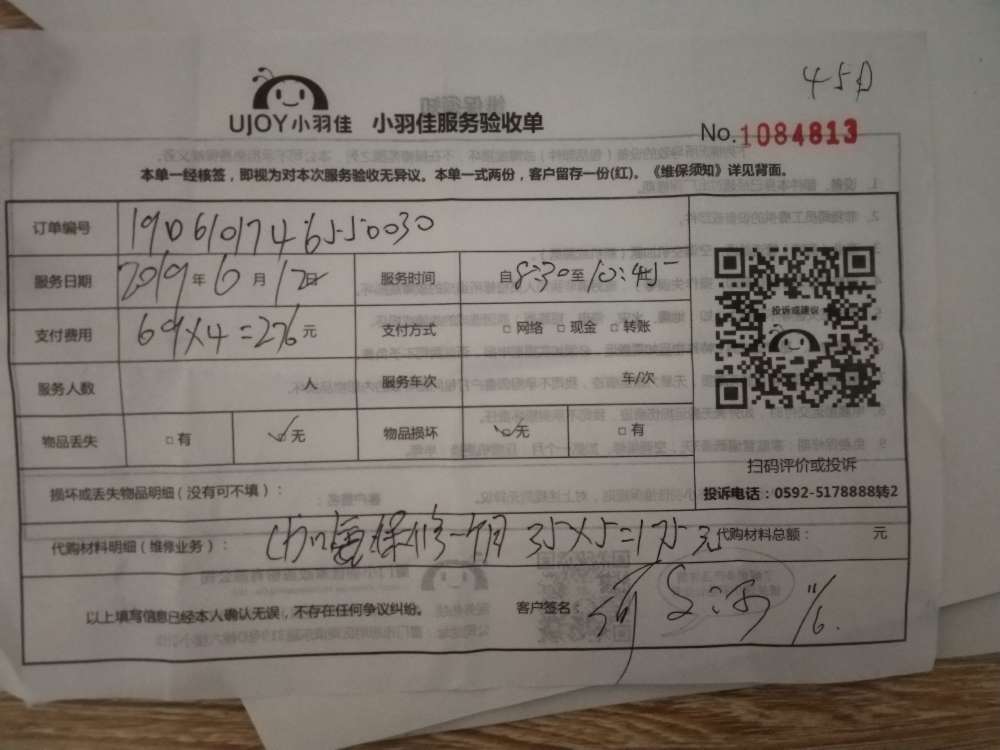 451
UJOY小羽佳 小羽佳服务验收单
No.1084813
本单一经核签，即视为对本次服务验收无异议。本单一式两份，客户留存一份(红)。《维保须知》详见背面。
订单编号 19061017465550030
服务日期 2019年6月12日 服务时间 自8:30至10:45
支付费用 69×4=276元 支付方式 □网络 □现金 □转账
服务人数 人 服务车次 车/次
物品丢失 □有 ☑无 物品损坏 ☑无 □有
投诉或建议
扫码评价或投诉
投诉电话：0592-5178888转2
损坏或丢失物品明细（没有可不填）：
代购材料明细（维修业务）： 保修一个月 35×5=175元 代购材料总额： 元
以上填写信息已经本人确认无误，不存在任何争议纠纷。 客户签名：